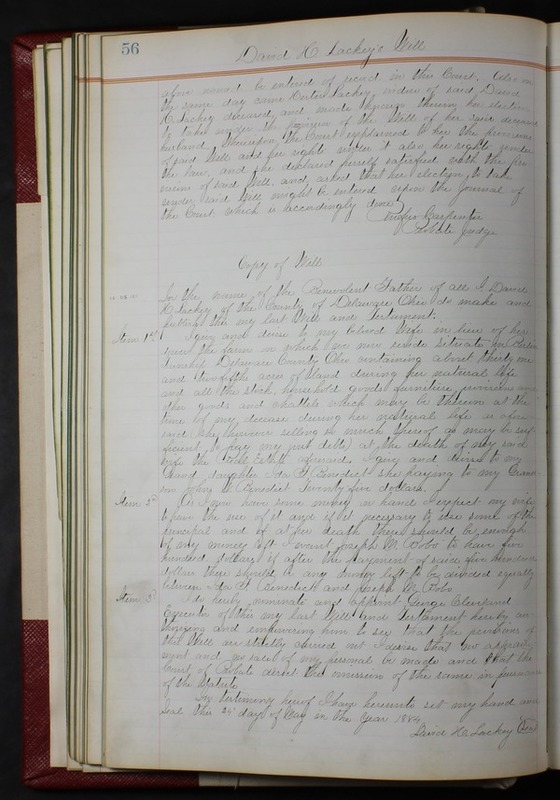 56
David H. Lackey's Will
afore named be entered of record in this Court. Also on
the same day came Lackey, widow of said David
H. Lackey deceased, and made known her election
to take under the provision of the Will of her said deceased
husband. Whereupon, the Court explained to her the provisions
of said Will and her rights under it also her rights under
the law, and she declared herself satisfied with the pro
vision of said Will, and, asked that her election, to take
under said Will might be entered upon the Journal of
the Court. which is accordingly done.
Carpenter
Probate Judge
Copy of Will
In the name of the Benevolent Father of all I David
H. Lackey of the County of Delaware Ohio do make and
publish this my last Will and Testament:
Item 1st I give and devise to my beloved Wife in lieu of her
dower the farm on which we now reside situate in
township Delaware County Ohio containing about thirty one
and acres of land during her natural life
and all the stock, household goods, furniture, provisions and
other goods and chattels which may be thereon at the
time of my decease during her natural life as afore
said she however selling so much thereof as may be suf
ficient to pay my just debts, at the death of my said
wife the Real Estate aforesaid, I give and devise to my
Grand daughter Ida F. Benedict she paying to my Grand
son John Benedict Twenty five dollars.
Item 2d As I now have some money in hand I expect my wife
to have the use of it and if it necessary to use some of the
principal and if at her death there should be enough
of my money left I want Joseph M. to have five
hundred dollars if after the payment of said five hundred
dollars there should be any money left to be divided equally
between Ida F. Benedict and Joseph M.
Item 3d I do hereby nominate and appoint George Cleveland
Executor of this my last Will and Testament hereby au
thorizing and empowering him to see that the provisions of
this Will are strictly carried out I desire that no appraise
ment and no sale of my personal be made and that the
Court of Probate direct the omission of the same in pursuance
of the statute.
In Testimony hereof I have hereunto set my hand and
seal this day of in the Year 1884
David H. Lackey Seal